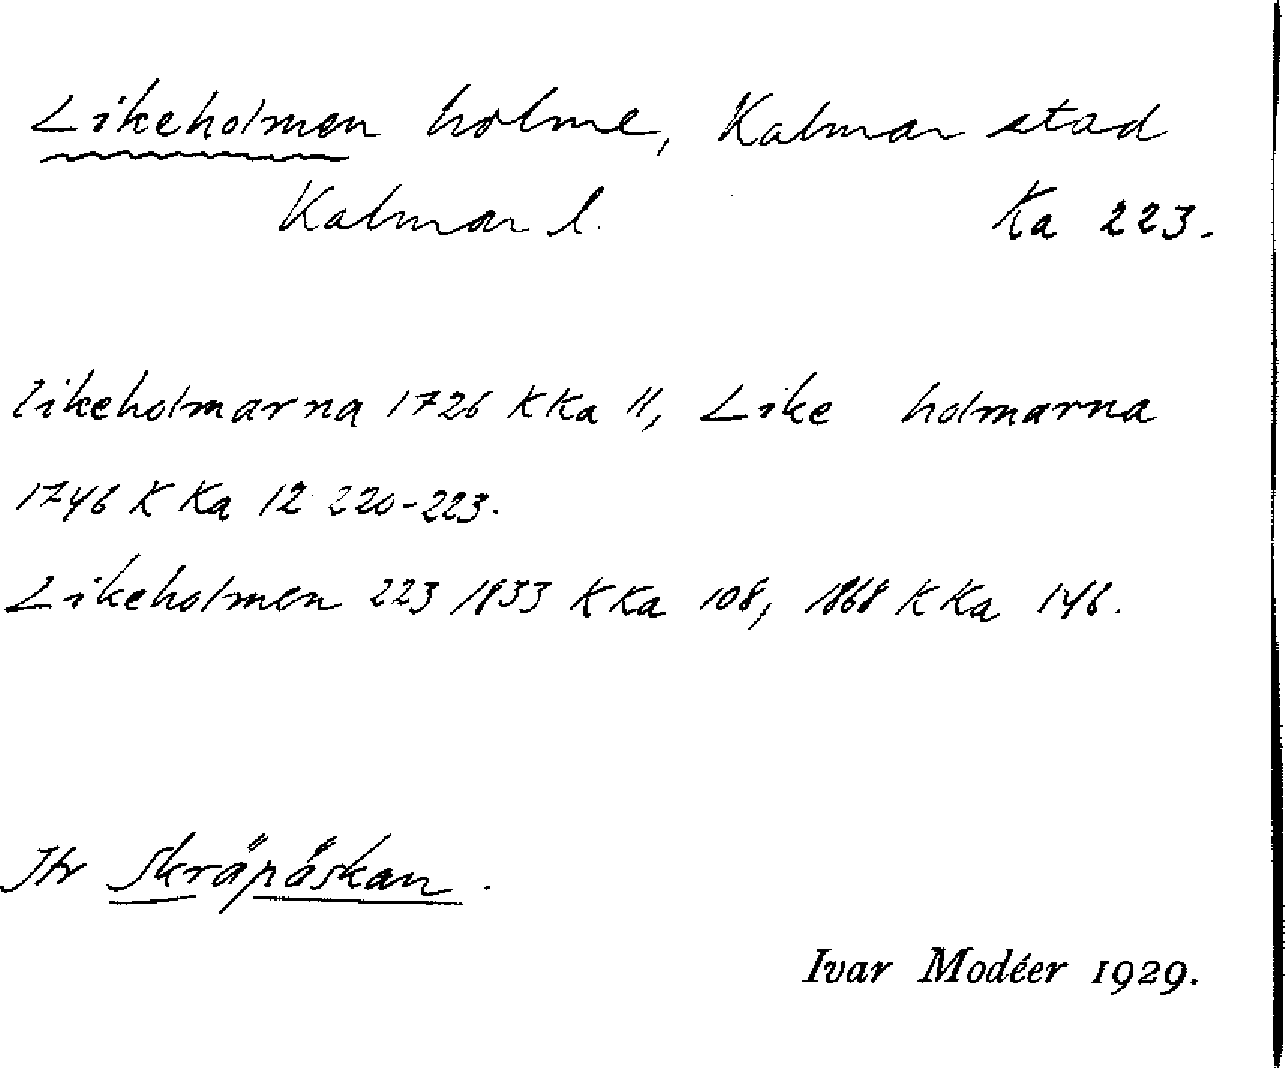 Likeholmen holme, Kalmar stad
Kalmar l. Ka 223.
Likeholmarna 1726 K Ka 11, Like holmarna
1746 K Ka 12 220-223.
Likeholmen 223 1833 K Ka 108, 1868 K Ka 146.
Jfr Skräpöskan.
Ivar Modéer 1929.